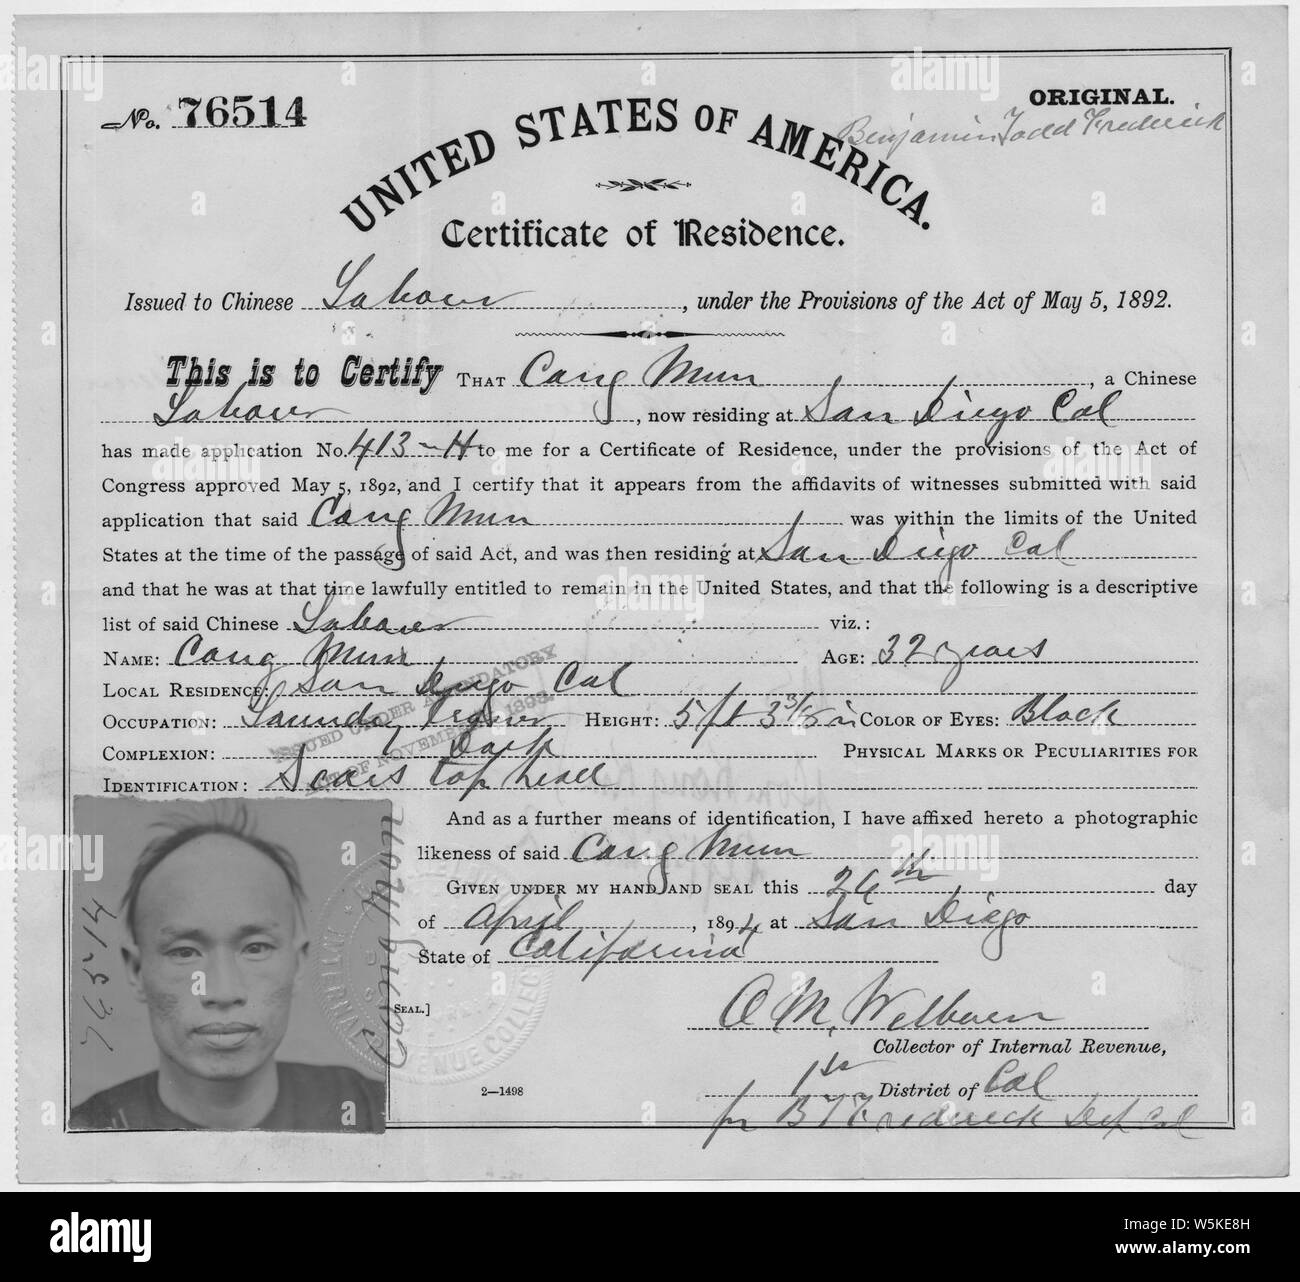 No. 76514
ORIGINAL.
Benjamin Todd Frederick
UNITED STATES OF AMERICA.
Certificate of Residence.
Issued to Chinese Laborer, under the Provisions of the Act of May 5, 1892.
This is to Certify THAT Cong Mun, a Chinese
Laborer, now residing at San Diego Cal
has made application No. 413-H to me for a Certificate of Residence, under the provisions of the Act of
Congress approved May 5, 1892, and I certify that it appears from the affidavits of witnesses submitted with said
application that said Cong Mun was within the limits of the United
States at the time of the passage of said Act, and was then residing at San Diego Cal
and that he was at that time lawfully entitled to remain in the United States, and that the following is a descriptive
list of said Chinese Laborer viz.:
NAME: Cong Mun AGE: 32 years
LOCAL RESIDENCE: San Diego Cal
OCCUPATION: Laundry HEIGHT: 5 ft 3 3/8 in COLOR OF EYES: Black
COMPLEXION: Dark PHYSICAL MARKS OR PECULIARITIES FOR
IDENTIFICATION: Scars top head
ISSUED UNDER AMENDATORY
ACT OF NOVEMBER 1893.
And as a further means of identification, I have affixed hereto a photographic
likeness of said Cong Mun
GIVEN UNDER MY HAND AND SEAL this 26th day
of April, 1894 at San Diego
State of California
76514
Cong Mun
SEAL.]
O M. Welburn
Collector of Internal Revenue,
1st District of Cal
for B T Frederick Dep Col
2—1498
alamy
W5KE8H
www.alamy.com